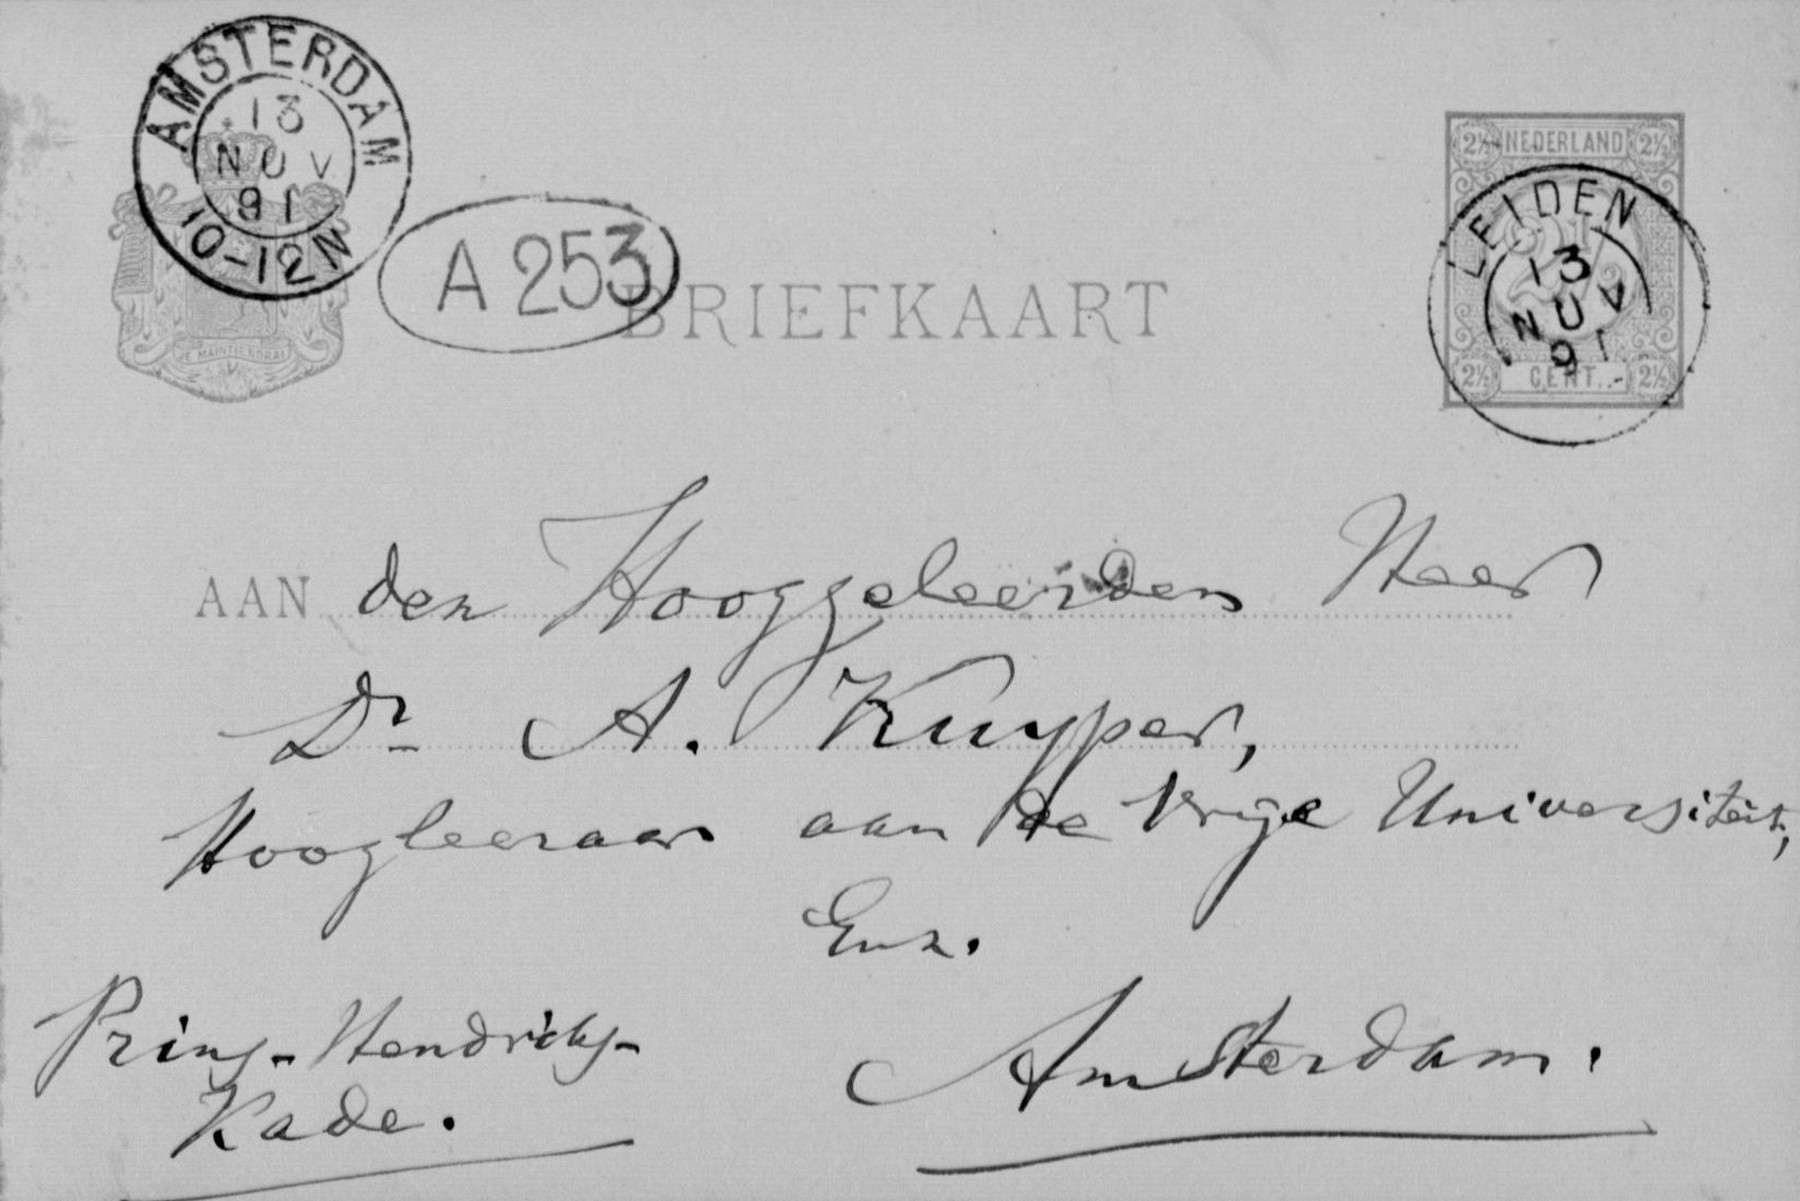 AMSTERDAM
13
NOV
91
10-12N
JE MAINTIENDRAI
A 253
BRIEFKAART
2½ NEDERLAND 2½
LEIDEN
13
NOV
91
2½ CENT. 2½
AAN den Hooggeleerden Heer
Dr A. Kuyper,
Hoogleeraar aan de Vrije Universiteit,
Enz.
Prins-Hendriks-
Kade.
Amsterdam.